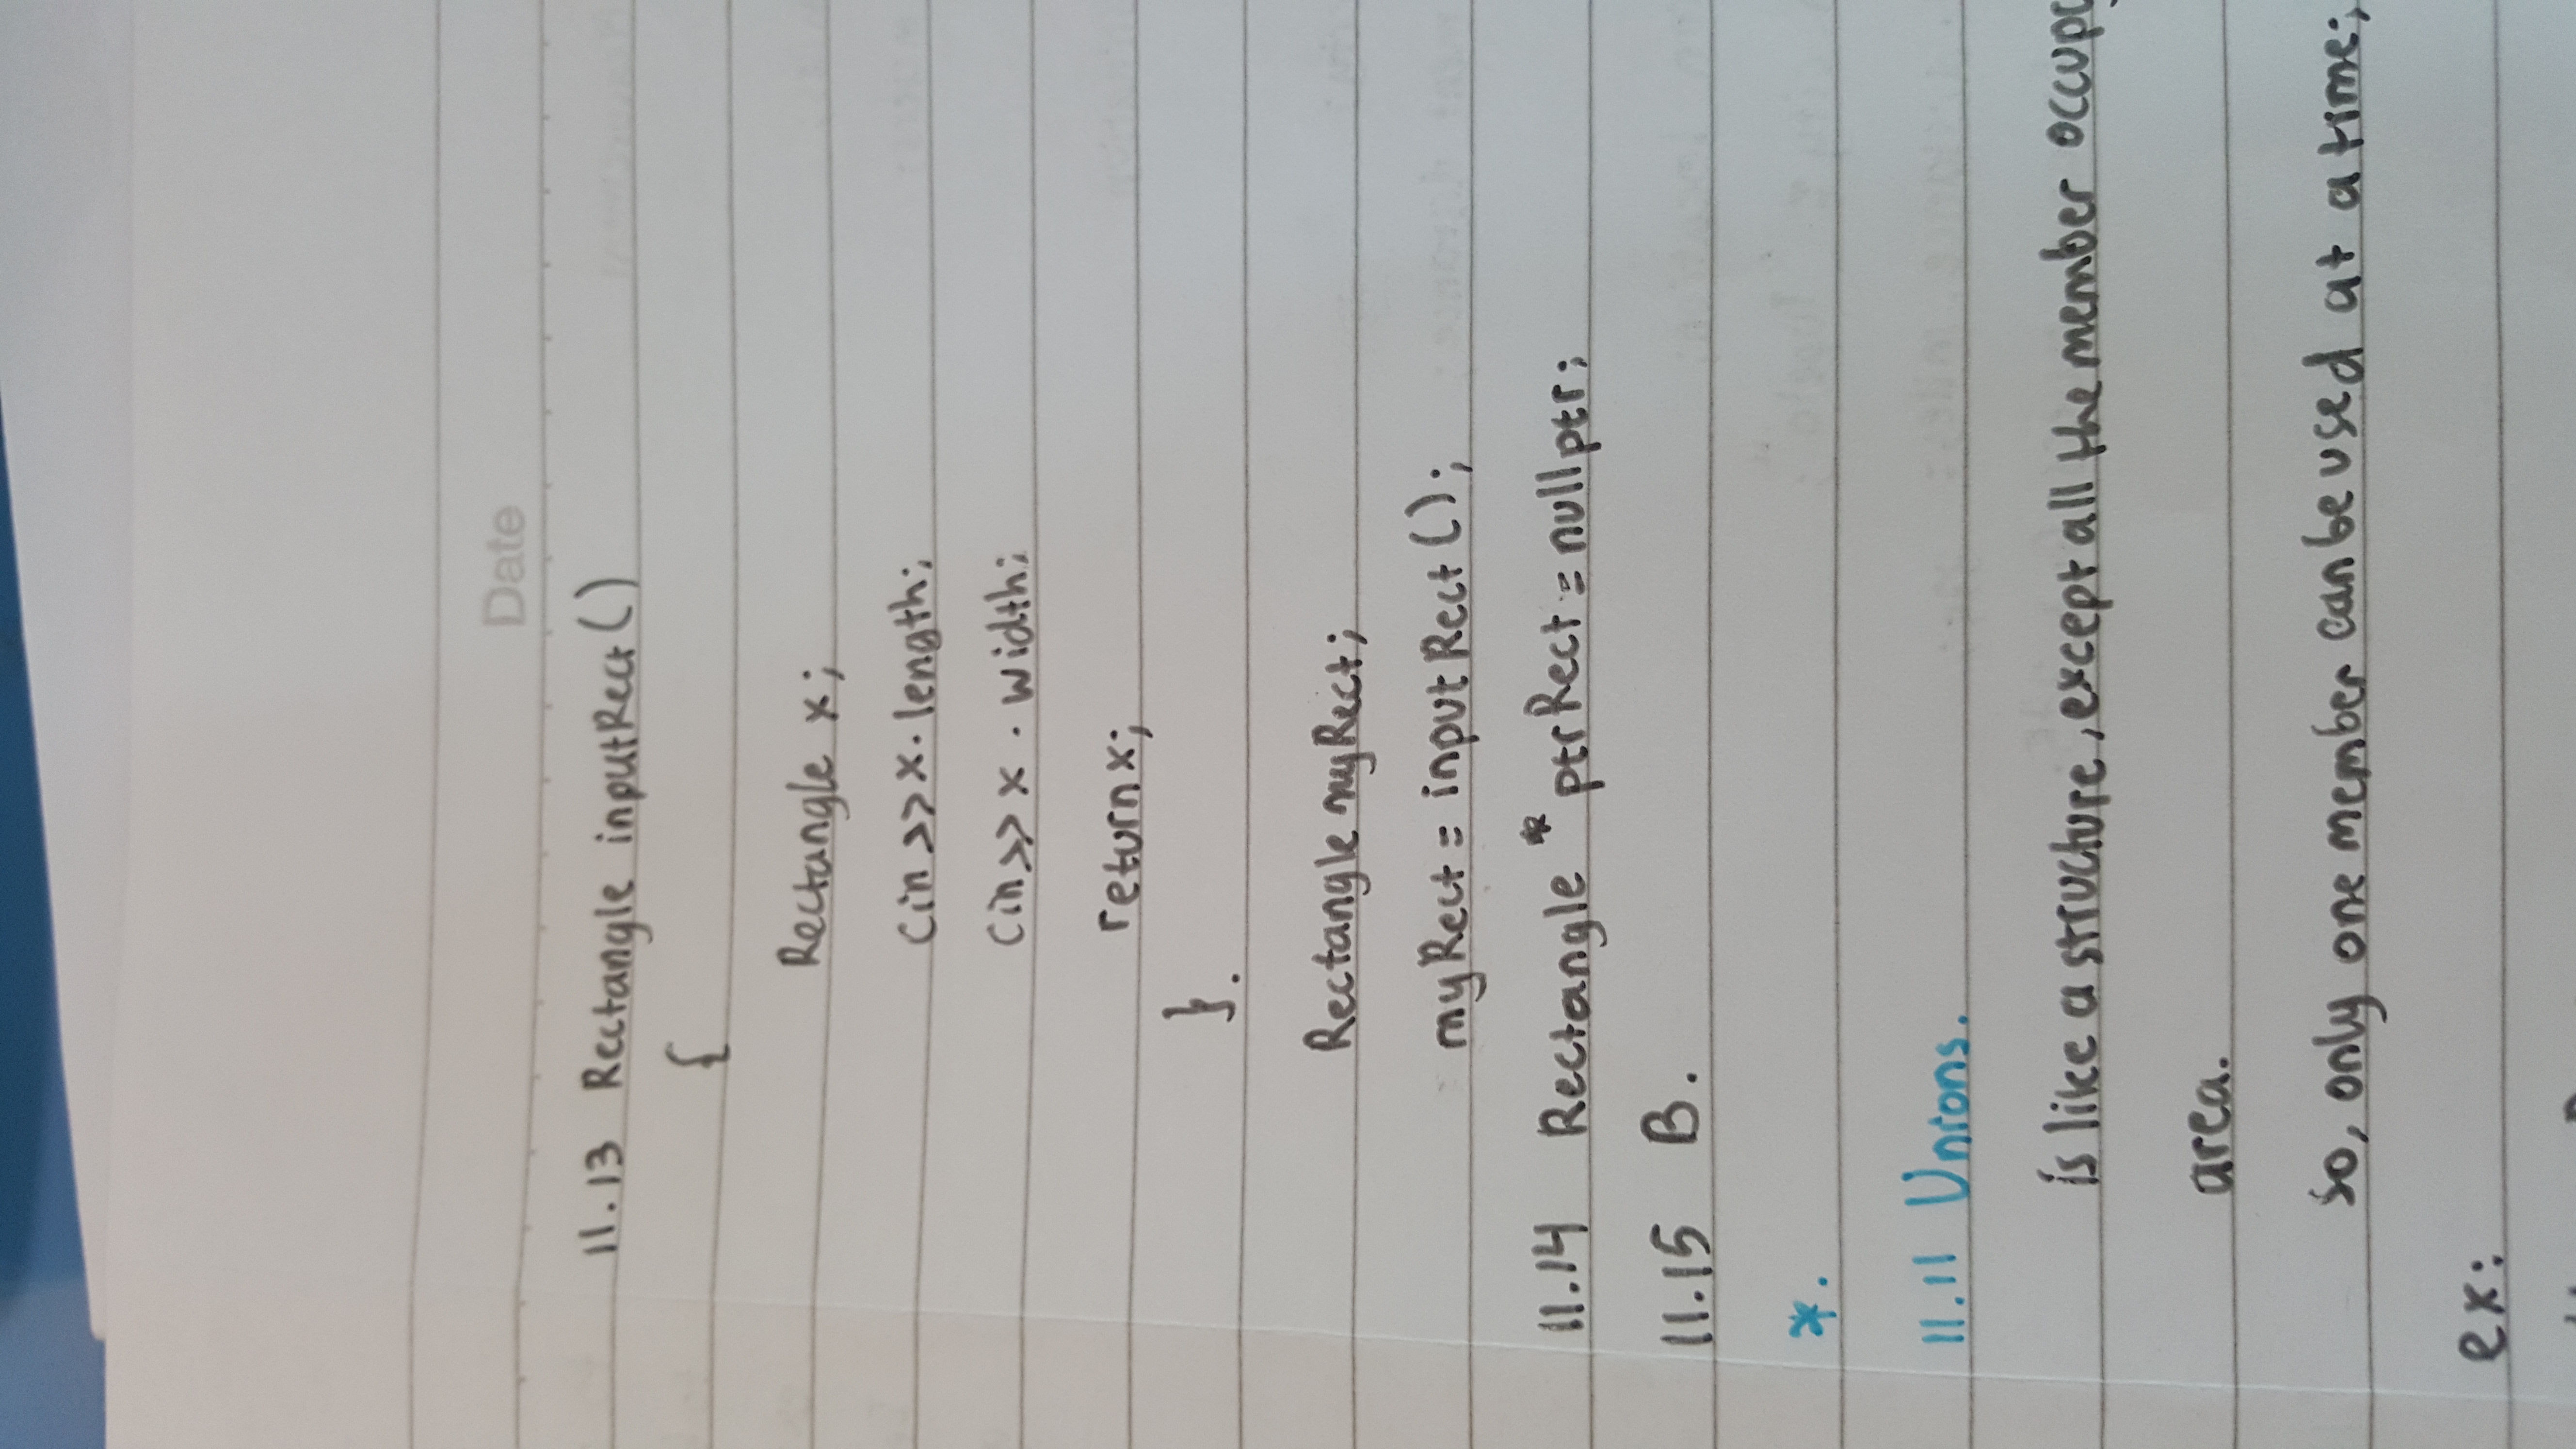 Date
11.13 Rectangle inputRect()
{
Rectangle x;
cin >> x. length;
cin >> x . width;
return x;
}.
Rectangle myRect;
myRect = inputRect();
11.14 Rectangle * ptrRect = nullptr;
11.15 B.
*.
11.11 Unions.
is like a structure, except all the member occupy
area.
So, only one member can be used at a time;
ex: